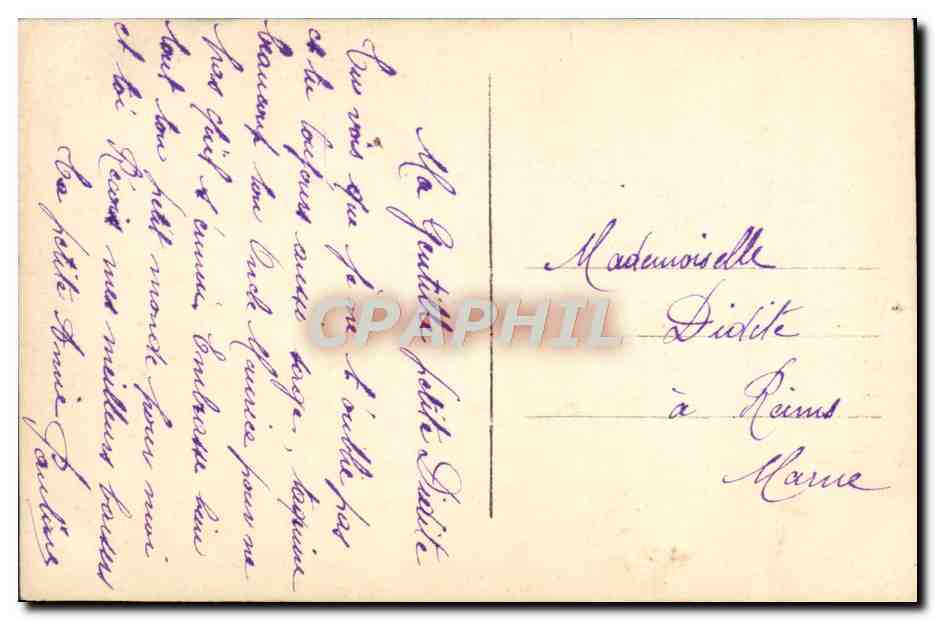 Ma Gentille petite Didite
Tu vois que je ne t'oublie pas
et tu toujours aussi sage, taquine
beaucoup ton Oncle Maurice pour ne
pas qu'il s'ennui, Embrasse bien
tout ton petit monde pour moi
et toi Reçois mes meilleurs baisers
Ta petite Amie Pauline
Mademoiselle
Didite
à Reims
Marne
CPAPHIL